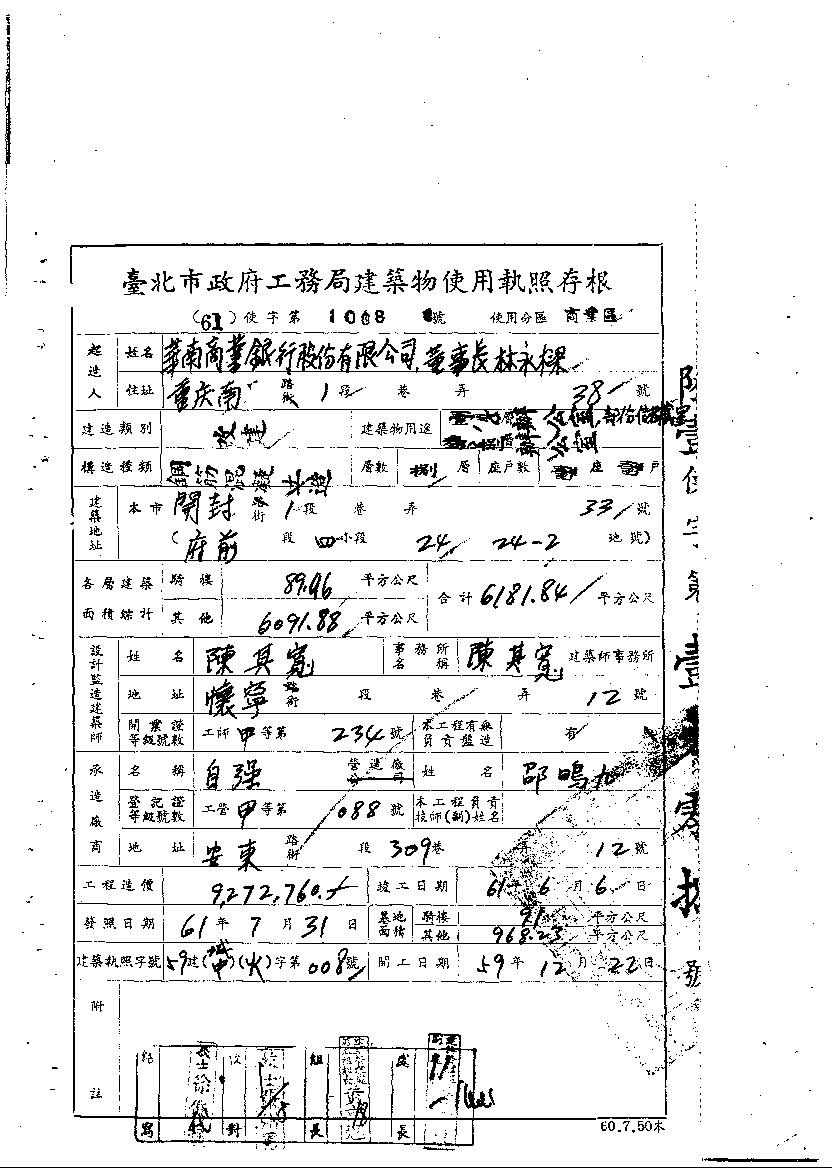 臺北市政府工務局建築物使用執照存根
(61)使字第 1008 號 使用分區 商業區
起造人 姓名 華南商業銀行股份有限公司,董事長林永樑
住址 重庆南 路街 1段 巷 弄 38 號
建造類別 改建 建築物用途
構造種類 鋼筋混凝土造 層數 捌 層 座戶數 座 戶
建築地址 本市 開封 路街 1段 巷 弄 33 號
(府前 段 四小段 24, 24-2 地號)
各層建築面積綜計 騎樓 89.96 平方公尺 合計 6181.84 平方公尺
其他 6091.88 平方公尺
設計監造建築師 姓名 陳其寬 事務所名稱 陳其寬 建築師事務所
地址 懷寧 路街 段 巷 弄 12 號
開業證等級號數 工師 甲 等第 234 號 本工程有無負責監造 有
承造廠商 名稱 自强 營造廠公司 姓名 邵鳴九
登記證等級號數 工營 甲 等第 088 號 本工程負責技師(副)姓名
地址 安東 路街 段 309 巷 弄 12 號
工程造價 9,272,760. 竣工日期 61年 6 月 6 日
發照日期 61 年 7 月 31 日 基地面積 騎樓 91 平方公尺
其他 968.23 平方公尺
建築執照字號 59建( )(火)字第 008 號 開工日期 59 年 12 月 22 日
附註
繕寫 校對 組長 處長
60.7.50本
使字第壹 零 號